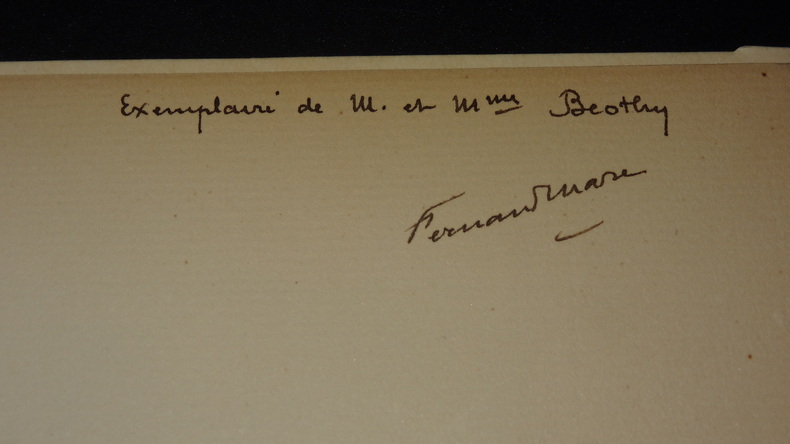 Exemplaire de M. et Mme Beothy
Fernand Marc